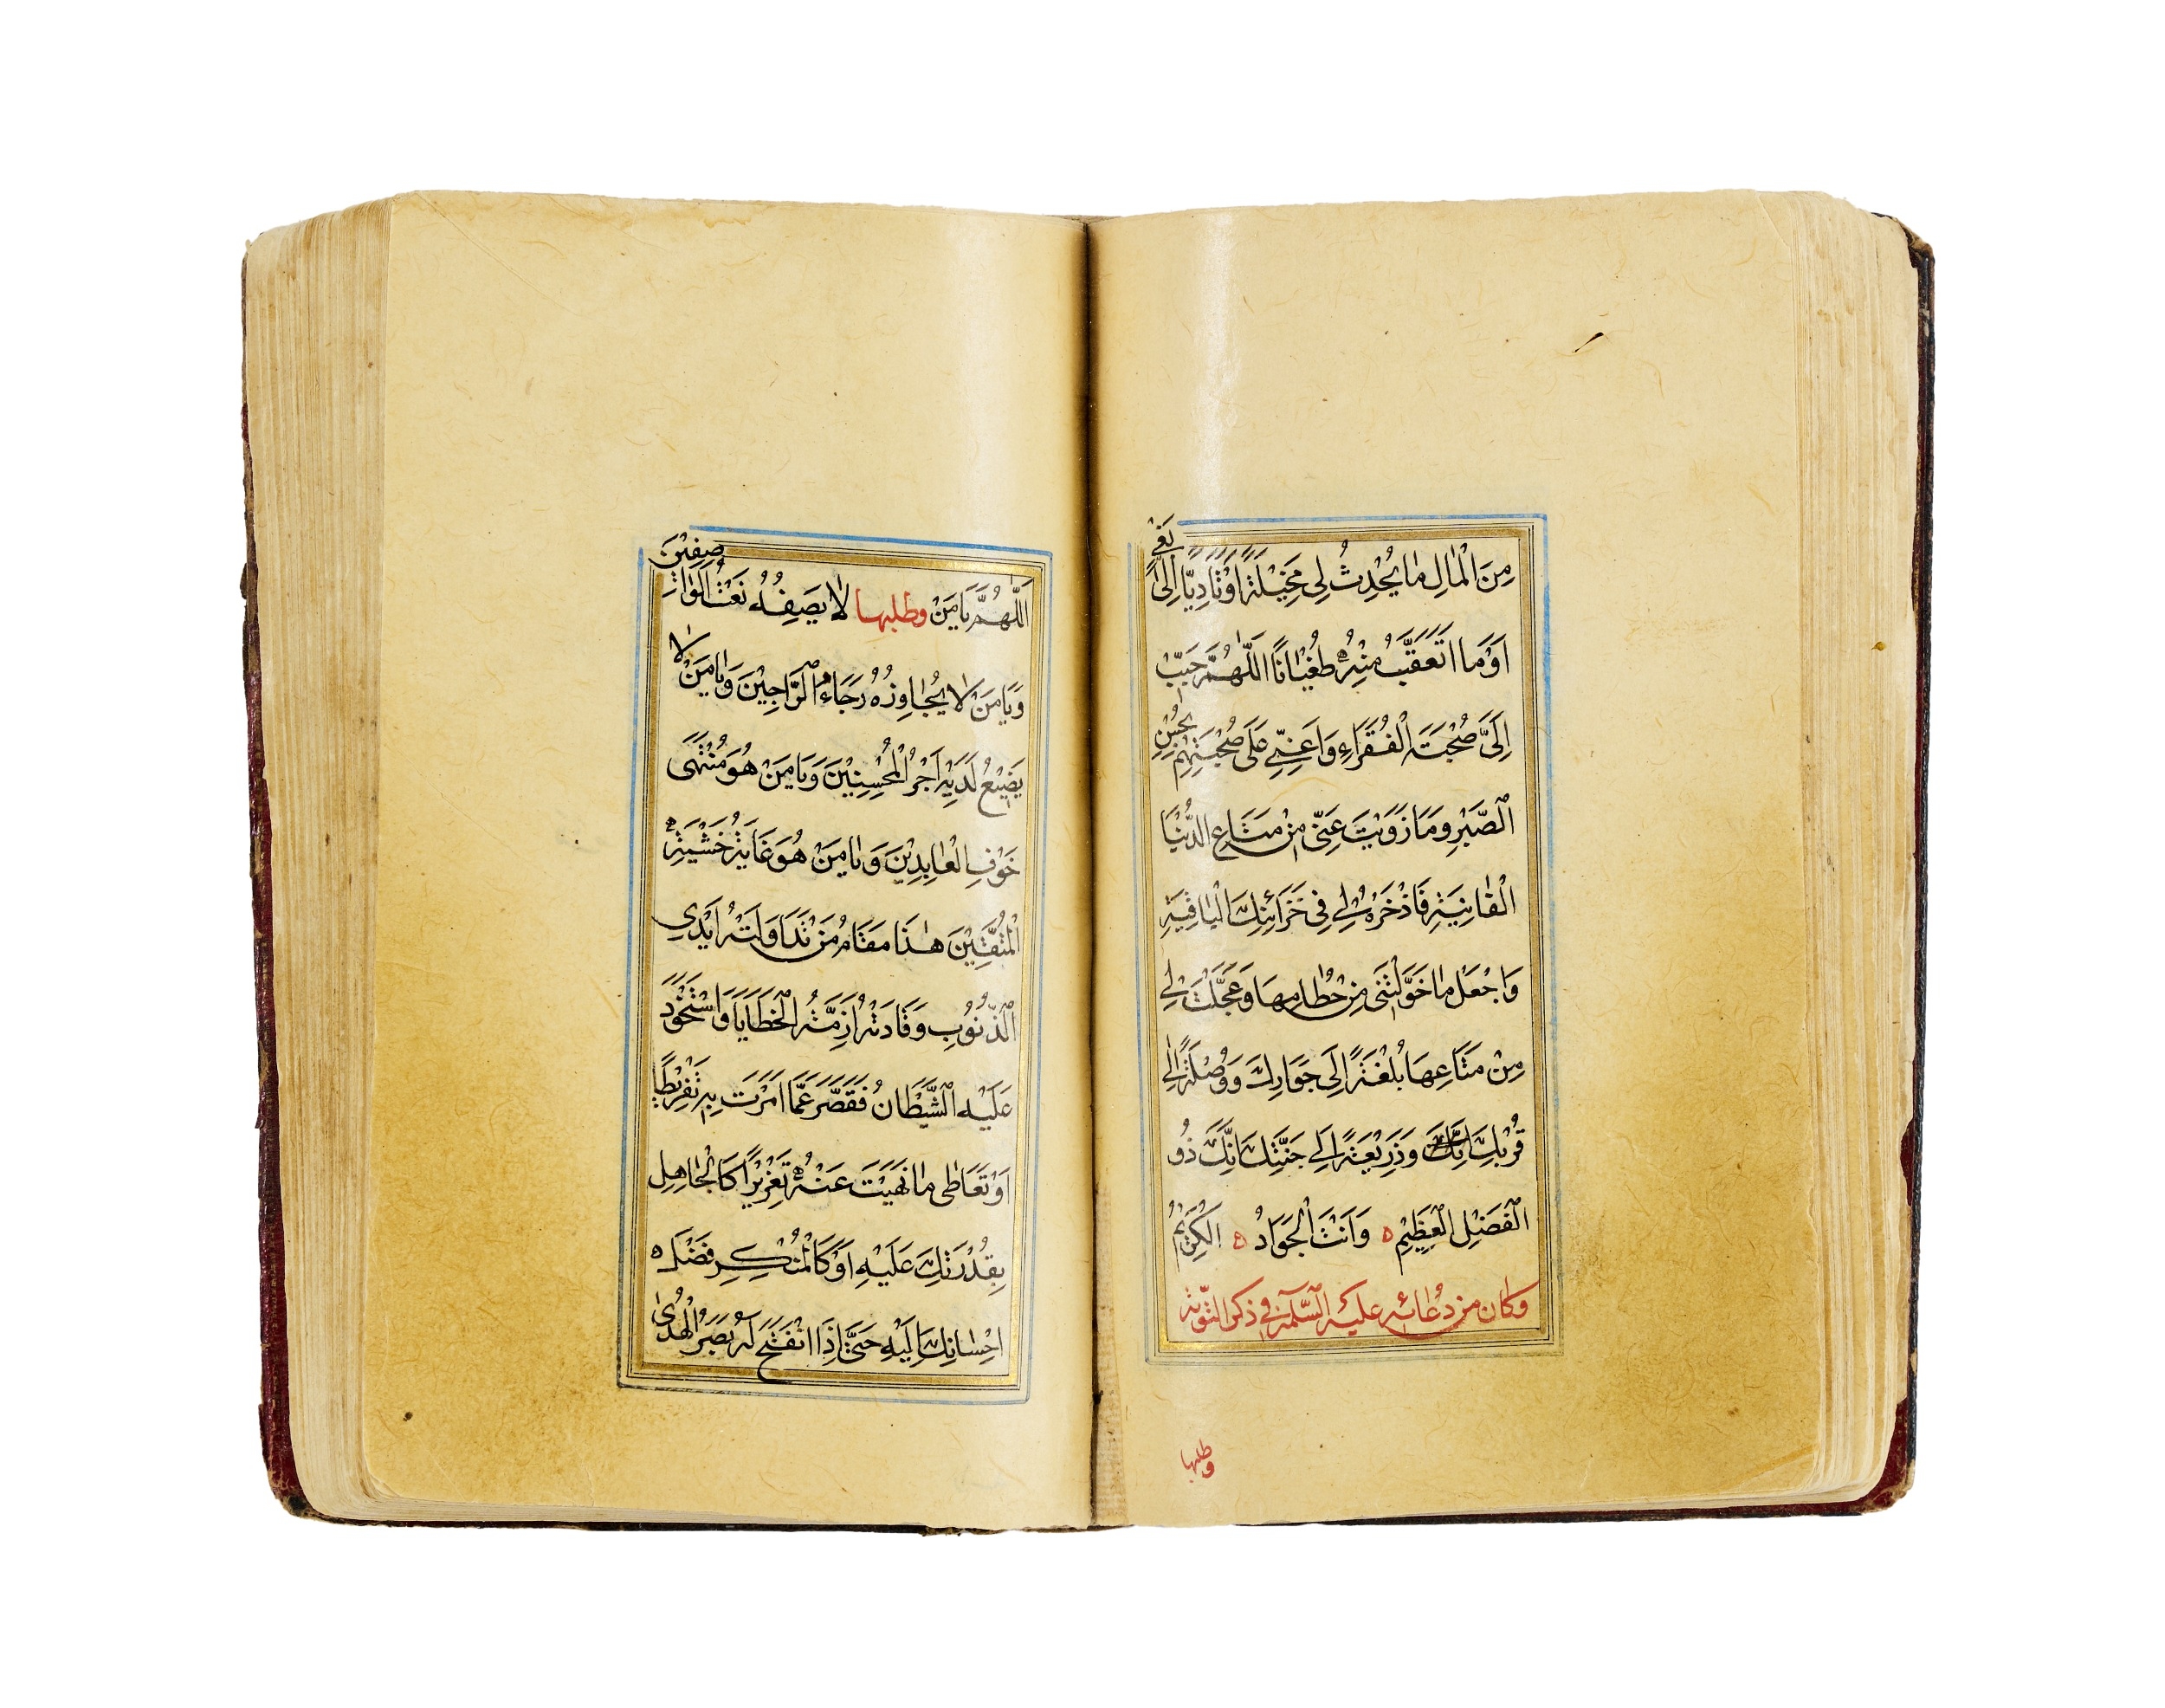 مِنَ الْمَالِ مَا يُحْدِثُ لِي مَخِيْلَةً اَوْ تَاَدِّيًا اِلَى بَغْيٍ
اَوْ مَا اَتَعَقَّبُ مِنْهُ طُغْيَانًا اَللّٰهُمَّ حَبِّبْ
اِلَيَّ صُحْبَةَ الْفُقَرَاءِ وَاَعِنِّي عَلَى صُحْبَتِهِمْ بِحُسْنِ
الصَّبْرِ وَمَا زَوَيْتَ عَنِّي مِنْ مَتَاعِ الدُّنْيَا
الْفَانِيَةِ فَاذْخَرْهُ لِي فِي خَزَائِنِكَ الْبَاقِيَةِ
وَاجْعَلْ مَا خَوَّلْتَنِي مِنْ حُطَامِهَا وَعَجَّلْتَ لِي
مِنْ مَتَاعِهَا بُلْغَةً اِلَى جَوَارِكَ وَوُصْلَةً اِلَى
قُرْبِكَ وَذَرِيْعَةً اِلَى جَنَّتِكَ اِنَّكَ ذُو
الْفَضْلِ الْعَظِيْمِ ه وَاَنْتَ الْجَوَادُ ه الْكَرِيْمُ
وكان من دُعائه عليه السّلام في ذكر التوبة
وطلبها
اَللّٰهُمَّ يَا مَنْ وطلبها لَا يَصِفُهُ نَعْتُ الْوَاصِفِيْنَ
وَيَا مَنْ لَا يُجَاوِزُهُ رَجَاءُ الرَّاجِيْنَ وَيَا مَنْ لَا
يَضِيْعُ لَدَيْهِ اَجْرُ الْمُحْسِنِيْنَ وَيَا مَنْ هُوَ مُنْتَهَى
خَوْفِ الْعَابِدِيْنَ وَيَا مَنْ هُوَ غَايَةُ خَشْيَةِ
الْمُتَّقِيْنَ هٰذَا مَقَامُ مَنْ تَدَاوَلَتْهُ اَيْدِي
الذُّنُوْبِ وَقَادَتْهُ اَزِمَّةُ الْخَطَايَا وَاسْتَحْوَذَ
عَلَيْهِ الشَّيْطَانُ فَقَصَّرَ عَمَّا اَمَرْتَ بِهِ تَفْرِيْطًا
اَوْ تَعَاطَى مَا نَهَيْتَ عَنْهُ تَغْرِيْرًا كَالْجَاهِلِ
بِقُدْرَتِكَ عَلَيْهِ اَوْ كَالْمُنْكِرِ فَضْلَ
اِحْسَانِكَ اِلَيْهِ حَتَّى اِذَا انْفَتَحَ لَهُ بَصَرُ الْهُدَى